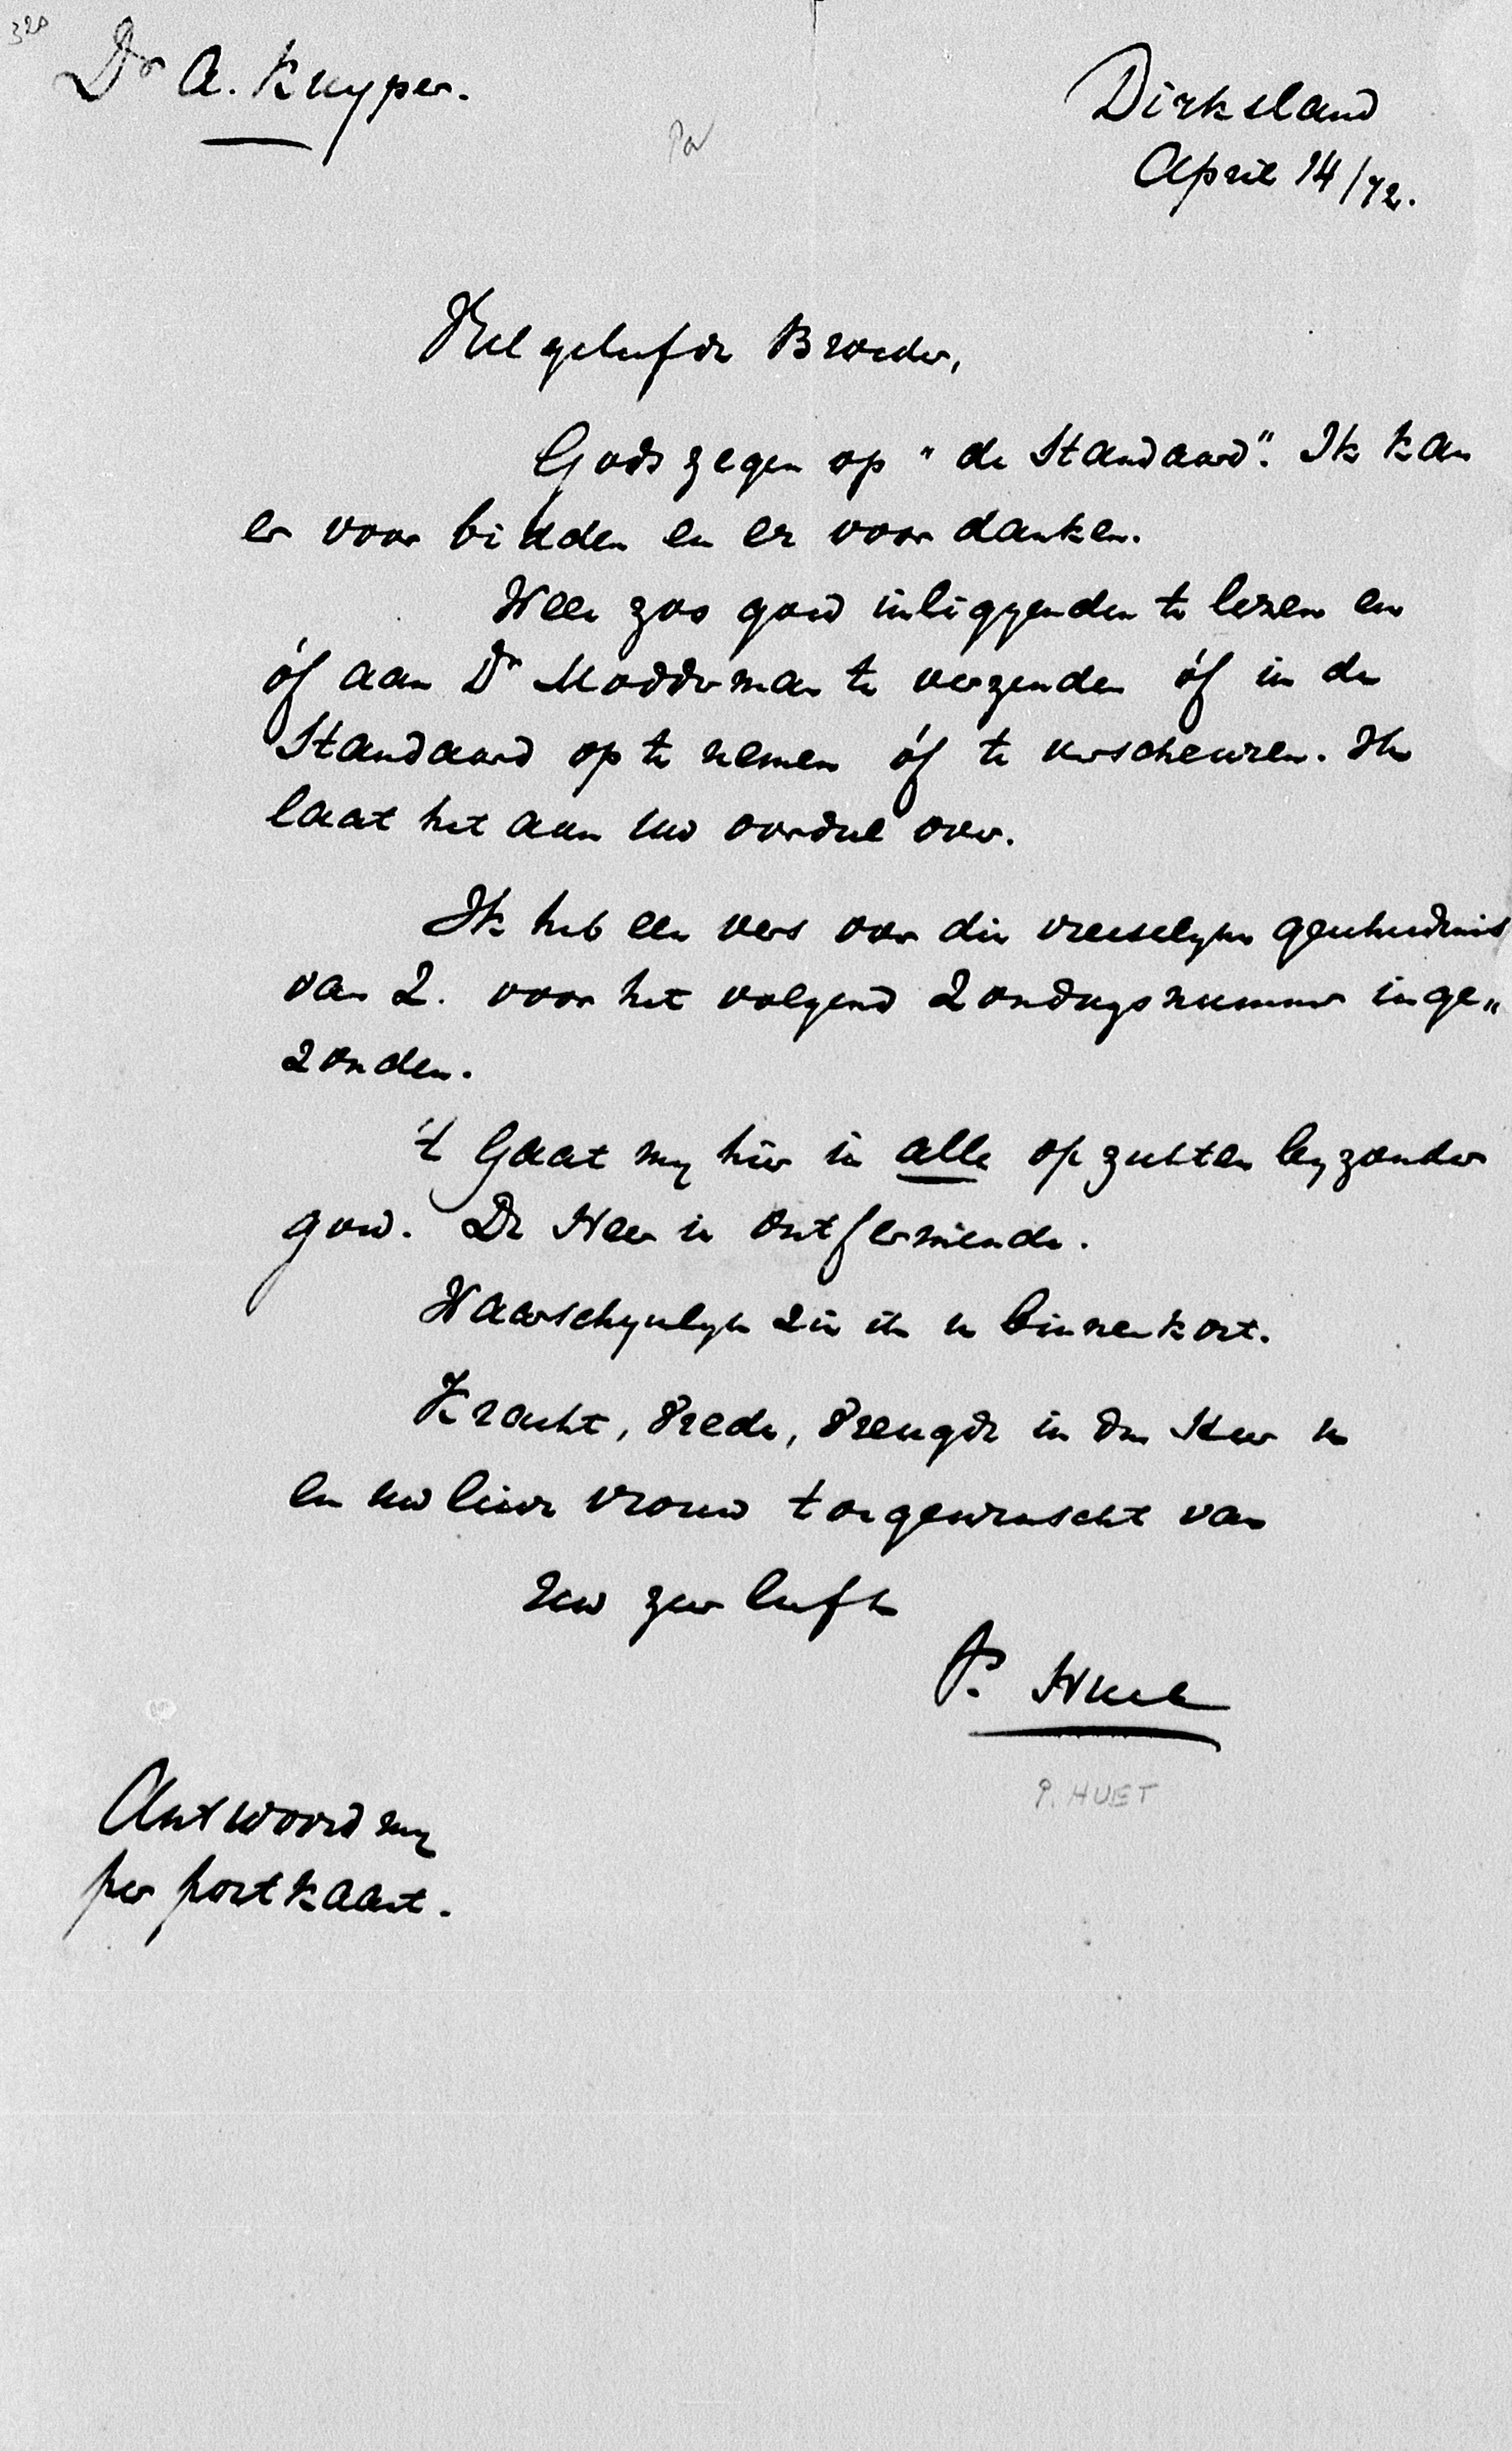 328
Dr A. Kuyper.
Dirksland
April 14/72.
Veelgeliefde Broeder,
Gods zegen op "de Standaard". Ik kan
er voor bidden en er voor danken.
Wees zoo goed inliggenden te lezen en
óf aan Dr Modderman te verzenden óf in de
Standaard op te nemen óf te verscheuren. Ik
laat het aan uw oordeel over.
Ik heb een vers over die vreeselyke geschiedenis
van Z. voor het volgend Zondagsnummer inge„
zonden.
't Gaat my hier in alle opzichten byzonder
goed. De Heer is ontfermende.
Waarschynlyk zie ik u binnenkort.
Kracht, vrede, vreugde in den Heer u
en uw lieve vrouw toegewenscht van
uw zeer liefh
P. Huet
P. HUET
Antwoord my
per postkaart.